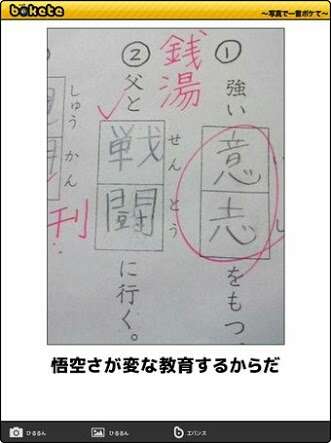 bokete
〜写真で一言ボケて〜
① 強い意志をもつ。
② 父と戦闘に行く。
せんとう
銭湯
しゅうかん
刊
悟空さが変な教育するからだ
ひるるん
ひるるん
エバンス